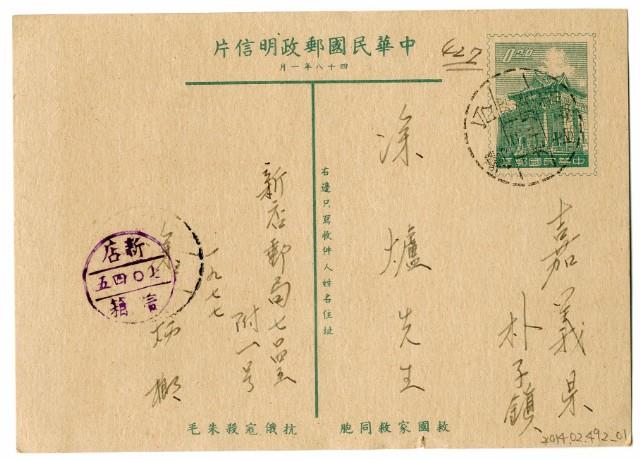 中華民國郵政明信片
四十八年一月
427
0.20
中華民國郵票
嘉義県
朴子鎮
涂爐先生
右邊只寫收件人姓名住址
新店郵局七
附一号
一九七七
涂炳榔
新店
信箱
救國家救同胞
抗俄寇殺朱毛
2014.02.492_01